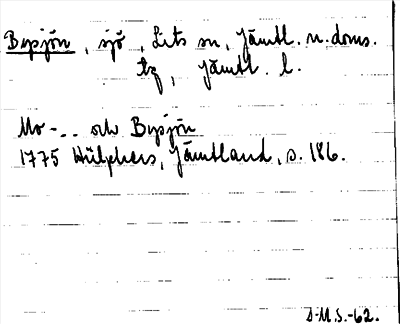 Bysjön, sjö, Lits sn, Jämtl. n. doms.
tg, Jämtl. l.
Mo - .. och Bysjön
1775 Hülphers, Jämtland, s. 186.
S-M.S.-62.